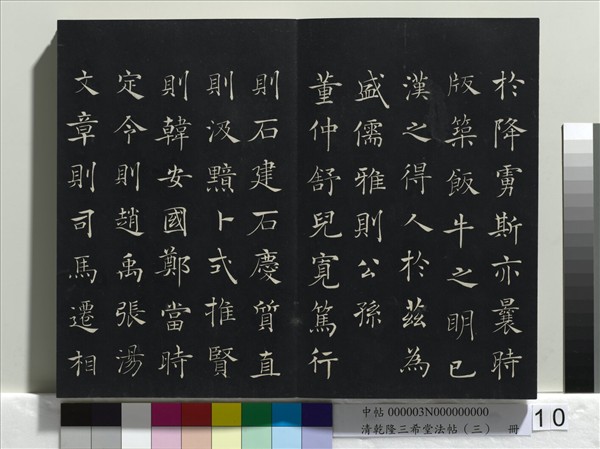 於降虜斯亦曩時
版築飯牛之明已
漢之得人於茲為
盛儒雅則公孫
董仲舒兒寬篤行
則石建石慶質直
則汲黯卜式推賢
則韓安國鄭當時
定令則趙禹張湯
文章則司馬遷相
中帖 000003N000000000
清乾隆三希堂法帖（三） 冊
10